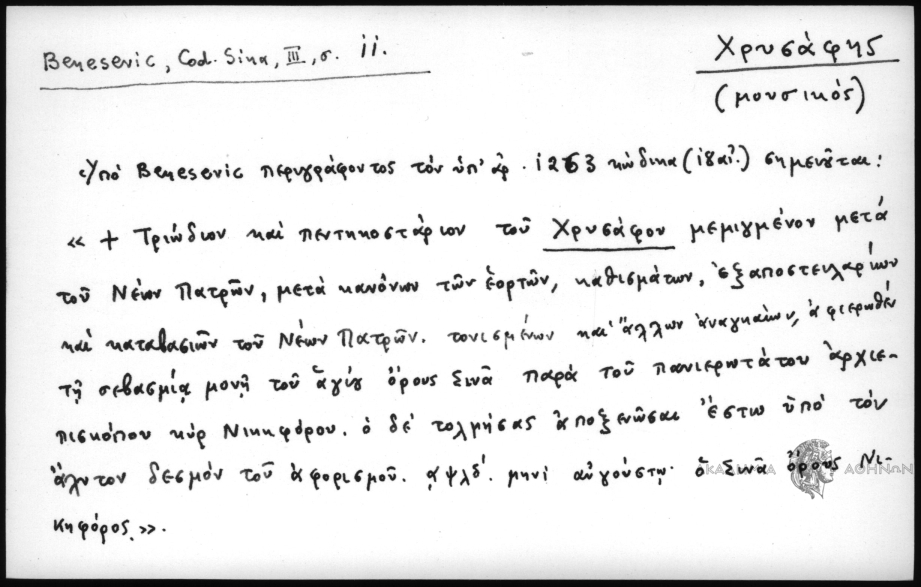 Benesevic, Cod. Sina, III, σ. ii.
Χρυσάφης
(μουσικός)
Ὑπό Benesevic περιγράφοντος τόν ὑπ' ἀρ. 1263 κώδικα (ιζ αἰ.) σημειοῦται:
« + Τριώδιον καί πεντηκοστάριον τοῦ Χρυσάφου μεμιγμένον μετά
τοῦ Νέων Πατρῶν, μετά κανόνων τῶν ἑορτῶν, καθισμάτων, ἐξαποστειλαρίων
καί καταβασιῶν τοῦ Νέων Πατρῶν. τονισμένων καί ἄλλων ἀναγκαίων, ἀφιερωθέν
τῇ σεβασμίᾳ μονῇ τοῦ ἁγίου ὄρους Σινᾶ παρά τοῦ πανιερωτάτου ἀρχιε-
πισκόπου κύρ Νικηφόρου. ὁ δέ τολμήσας ἀποξενῶσαι ἔστω ὑπό τόν
ἄλυτον δεσμόν τοῦ ἀφορισμοῦ. ͵αψλδ΄. μηνί αὐγούστῳ· ὁ Σινᾶ ὄρους Νι-
κηφόρος.».
ΑΘΗΝΩΝ